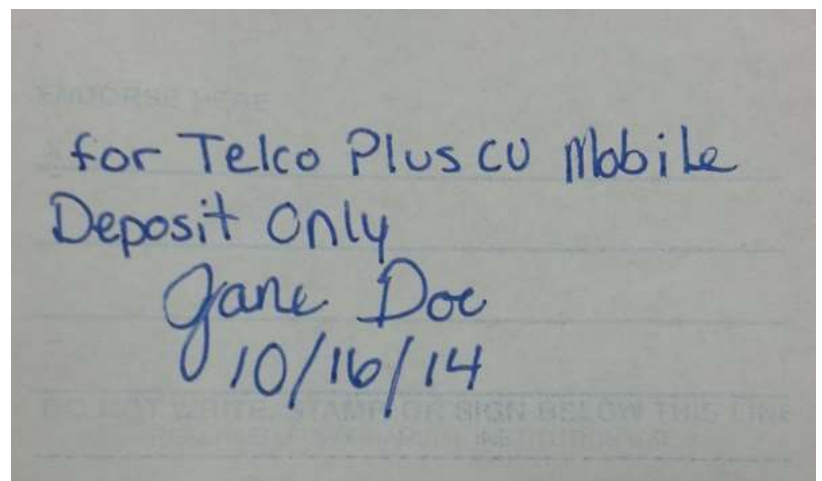 ENDORSE HERE
x
for Telco Plus CU Mobile
Deposit Only
Jane Doe
10/16/14
DO NOT WRITE, STAMP OR SIGN BELOW THIS LINE